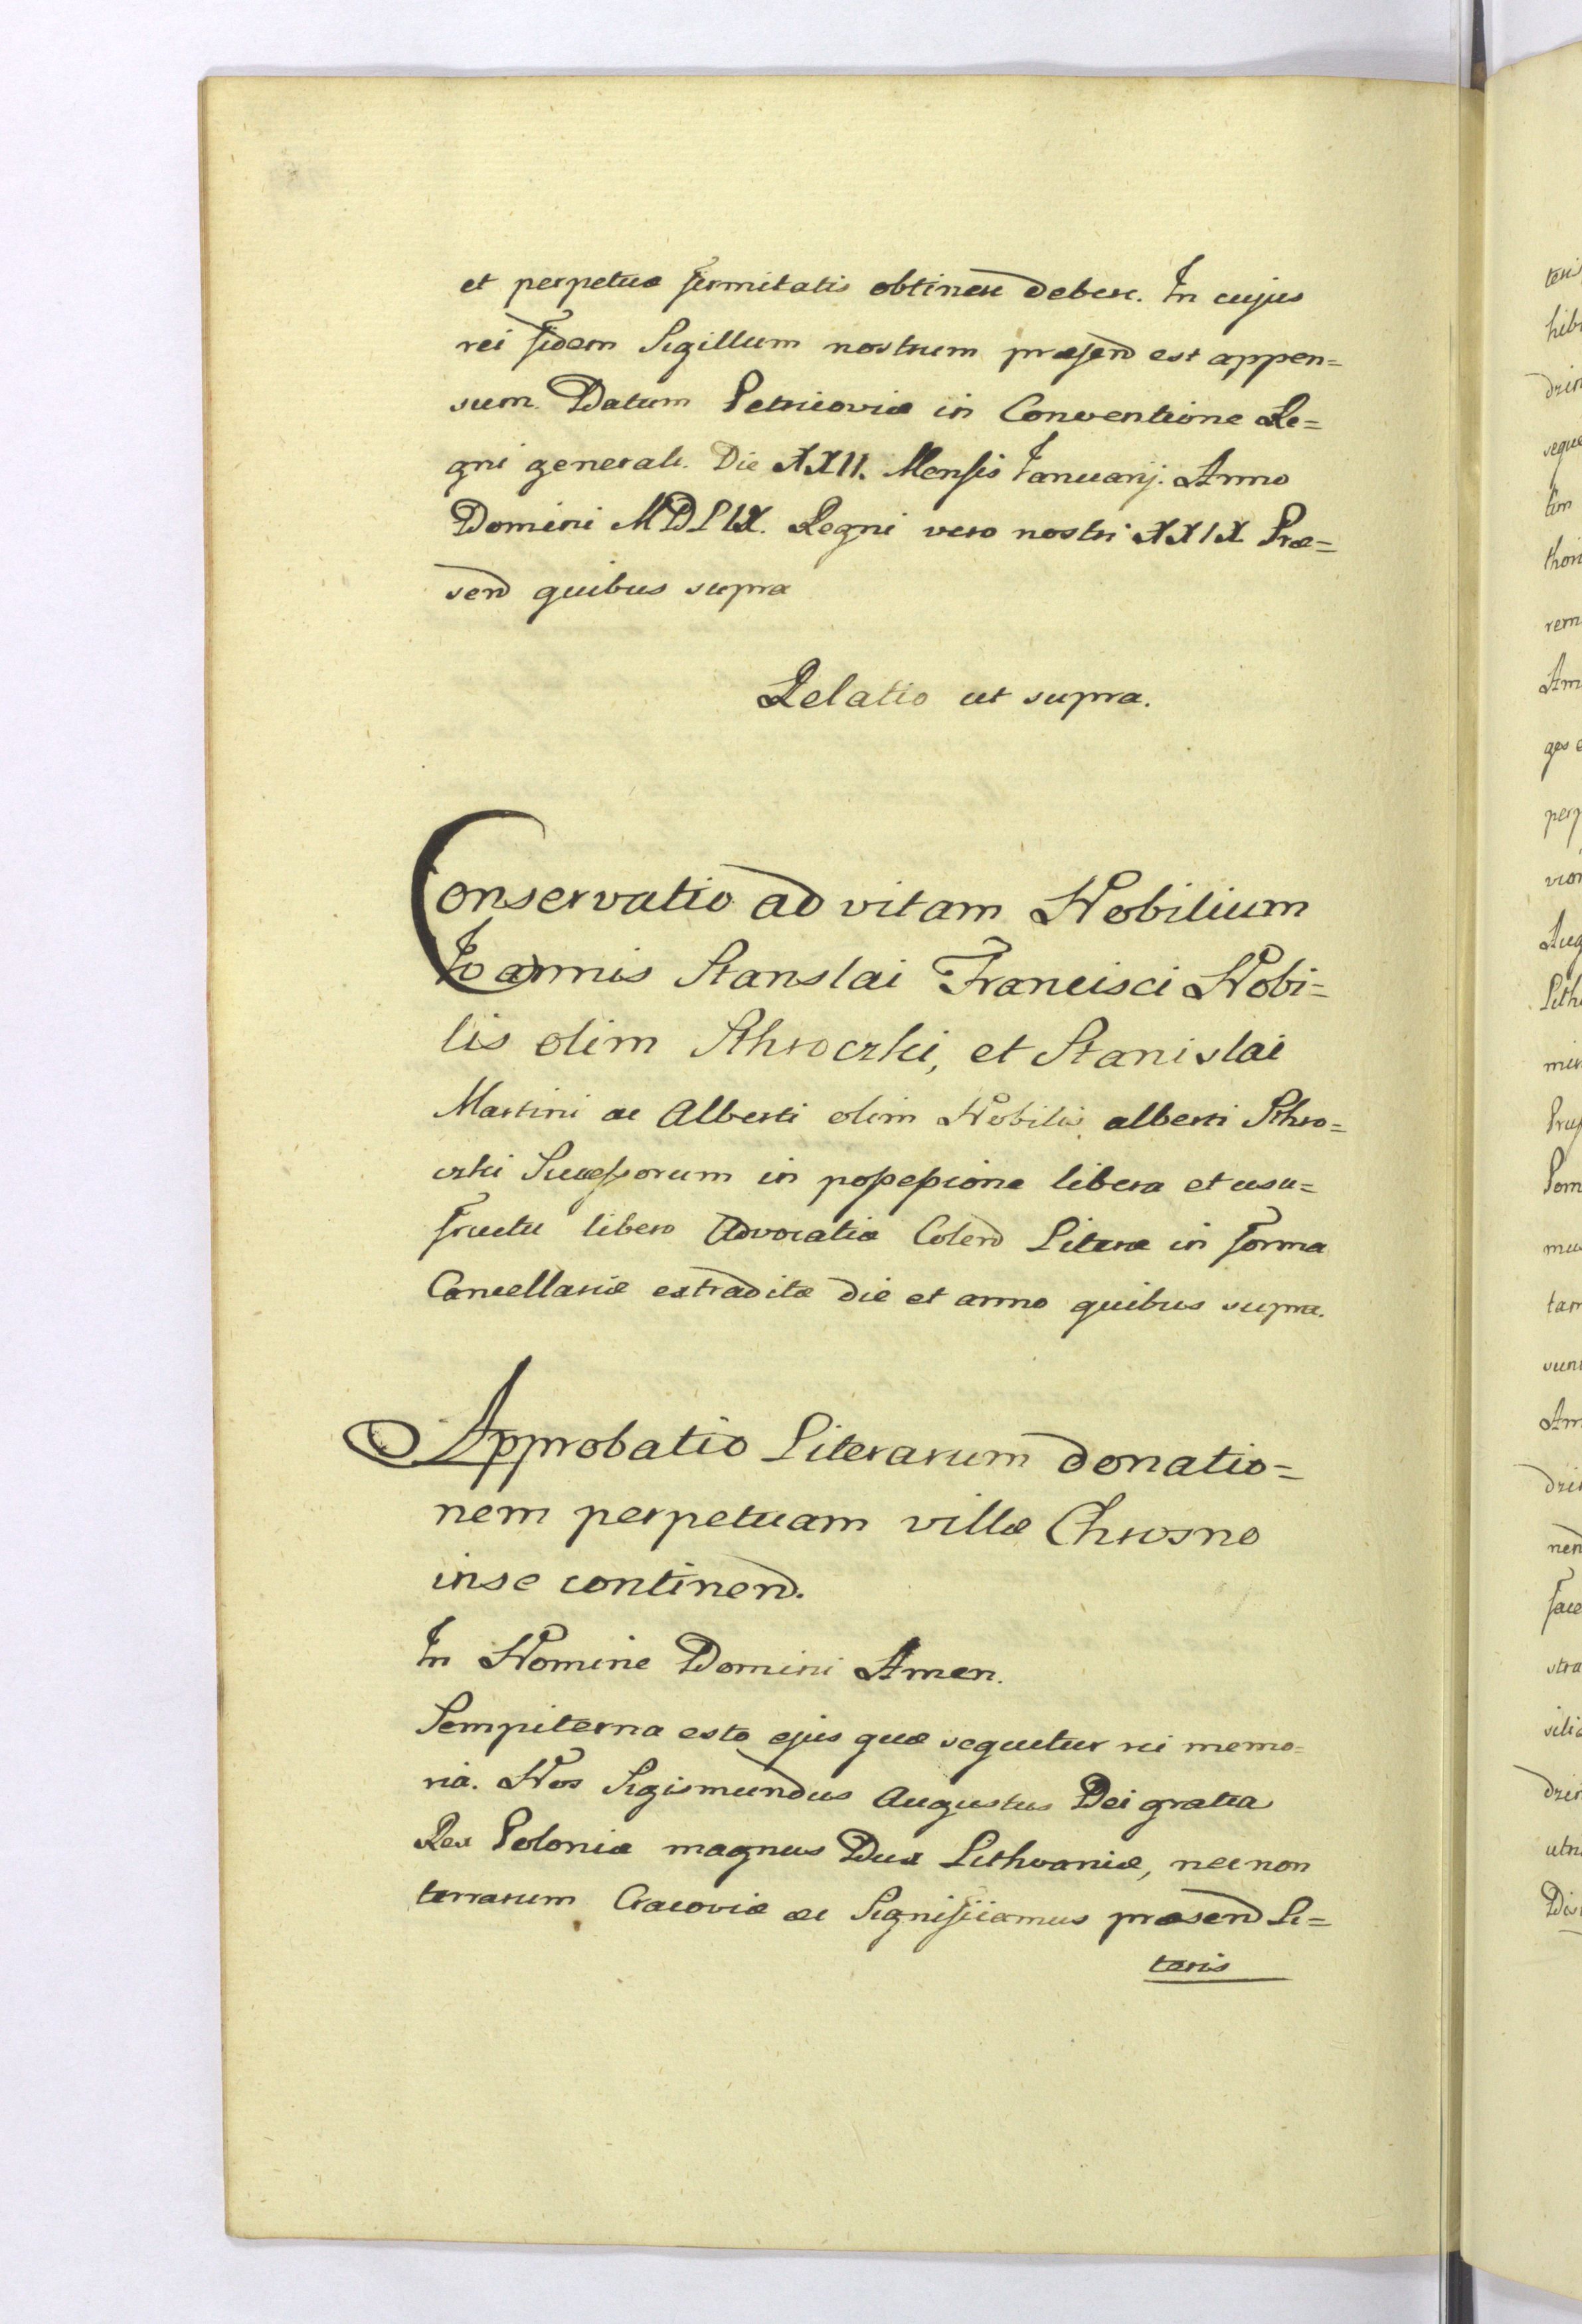 et perpetuæ firmitatis obtinere debere. In cujus
rei fidem Sigillum nostrum præsend est appen=
sum. Datum Petricoviæ in Conventione Re=
gni generali. Die XXII. Mensis Januarij. Anno
Domini MDLIX. Regni vero nostri XXIX Præ=
send quibus supra
Relatio ut supra.
Conservatio ad vitam Nobilium
Joannis Stanslai Francisci Nobi=
lis olim Sthroczki, et Stanislai
Martini ac Alberti olim Nobilis alberti Sthro=
czki Successorum in possessione libera et usu=
fructu libero Advocatiæ Colend Literæ in forma
Cancellariæ extraditæ die et anno quibus supra.
Approbatio Literarum donatio=
nem perpetuam villæ Chrosno
inse continend.
In Nomine Domini Amen.
Sempiterna esto ejus quæ sequetur rei memo=
ria. Nos Sigismundus Augustus Dei gratia
Rex Poloniæ magnus Dux Lithvaniæ, nec non
terrarum Cracoviæ ac Significamus præsend Li=
teris